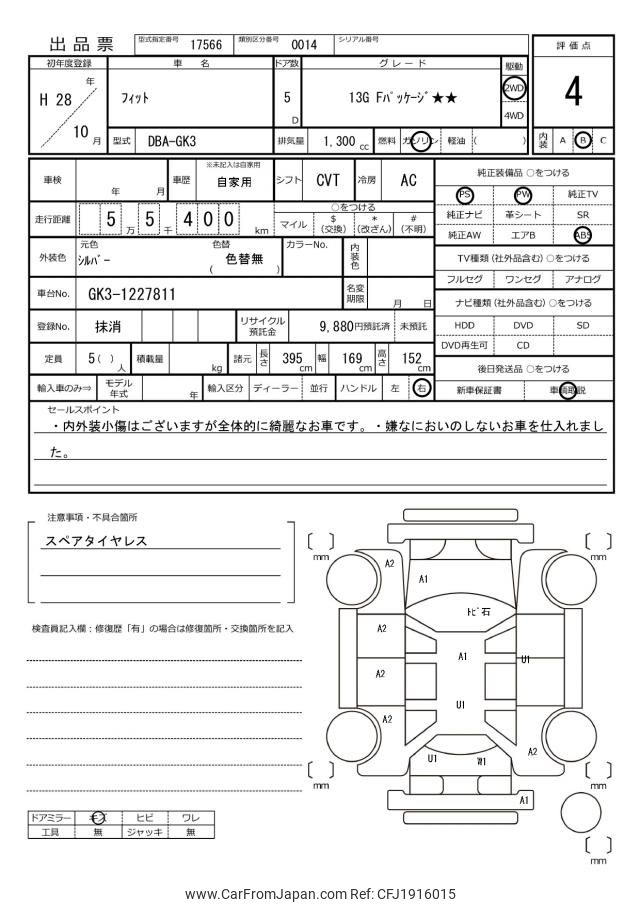 出品票 型式指定番号 17566 類別区分番号 0014 シリアル番号
評価点
4
内装 A B C
初年度登録 車名 ドア数 グレード 駆動
H 28 年 フィット 5 D 13G Fパッケージ★★ 2WD
4WD
10 月 型式 DBA-GK3 排気量 1,300 cc 燃料 ガソリン 軽油 ( )
車検 年 月 車歴 ※未記入は自家用 自家用 シフト CVT 冷房 AC
走行距離 5 万 5 千 4 0 0 km
○をつける
マイル $(交換) *(改ざん) #(不明)
外装色 元色 シルバー 色替 ( 色替無 ) カラーNo. 内装色
車台No. GK3-1227811 名変期限 月 日
登録No. 抹消 リサイクル預託金 9,880円預託済 未預託
定員 5( )人 積載量 kg 諸元 長さ 395 cm 幅 169 cm 高さ 152 cm
輸入車のみ⇒ モデル年式 年 輸入区分 ディーラー 並行 ハンドル 左 右
純正装備品 ○をつける
PS PW 純正TV
純正ナビ 革シート SR
純正AW エアB ABS
TV種類 (社外品含む) ○をつける
フルセグ ワンセグ アナログ
ナビ種類 (社外品含む) ○をつける
HDD DVD SD
DVD再生可 CD
後日発送品 ○をつける
新車保証書 車輌取説
セールスポイント
・内外装小傷はございますが全体的に綺麗なお車です。・嫌なにおいのしないお車を仕入れまし
た。
注意事項・不具合箇所
スペアタイヤレス
検査員記入欄：修復歴「有」の場合は修復箇所・交換箇所を記入
ドアミラー キズ ヒビ ワレ
工具 無 ジャッキ 無
mm mm
A2
A1
トビ石
A2
A1 U1
A2
U1
A2
U1 W1 A2
mm mm
A1
mm
www.CarFromJapan.com Ref: CFJ1916015